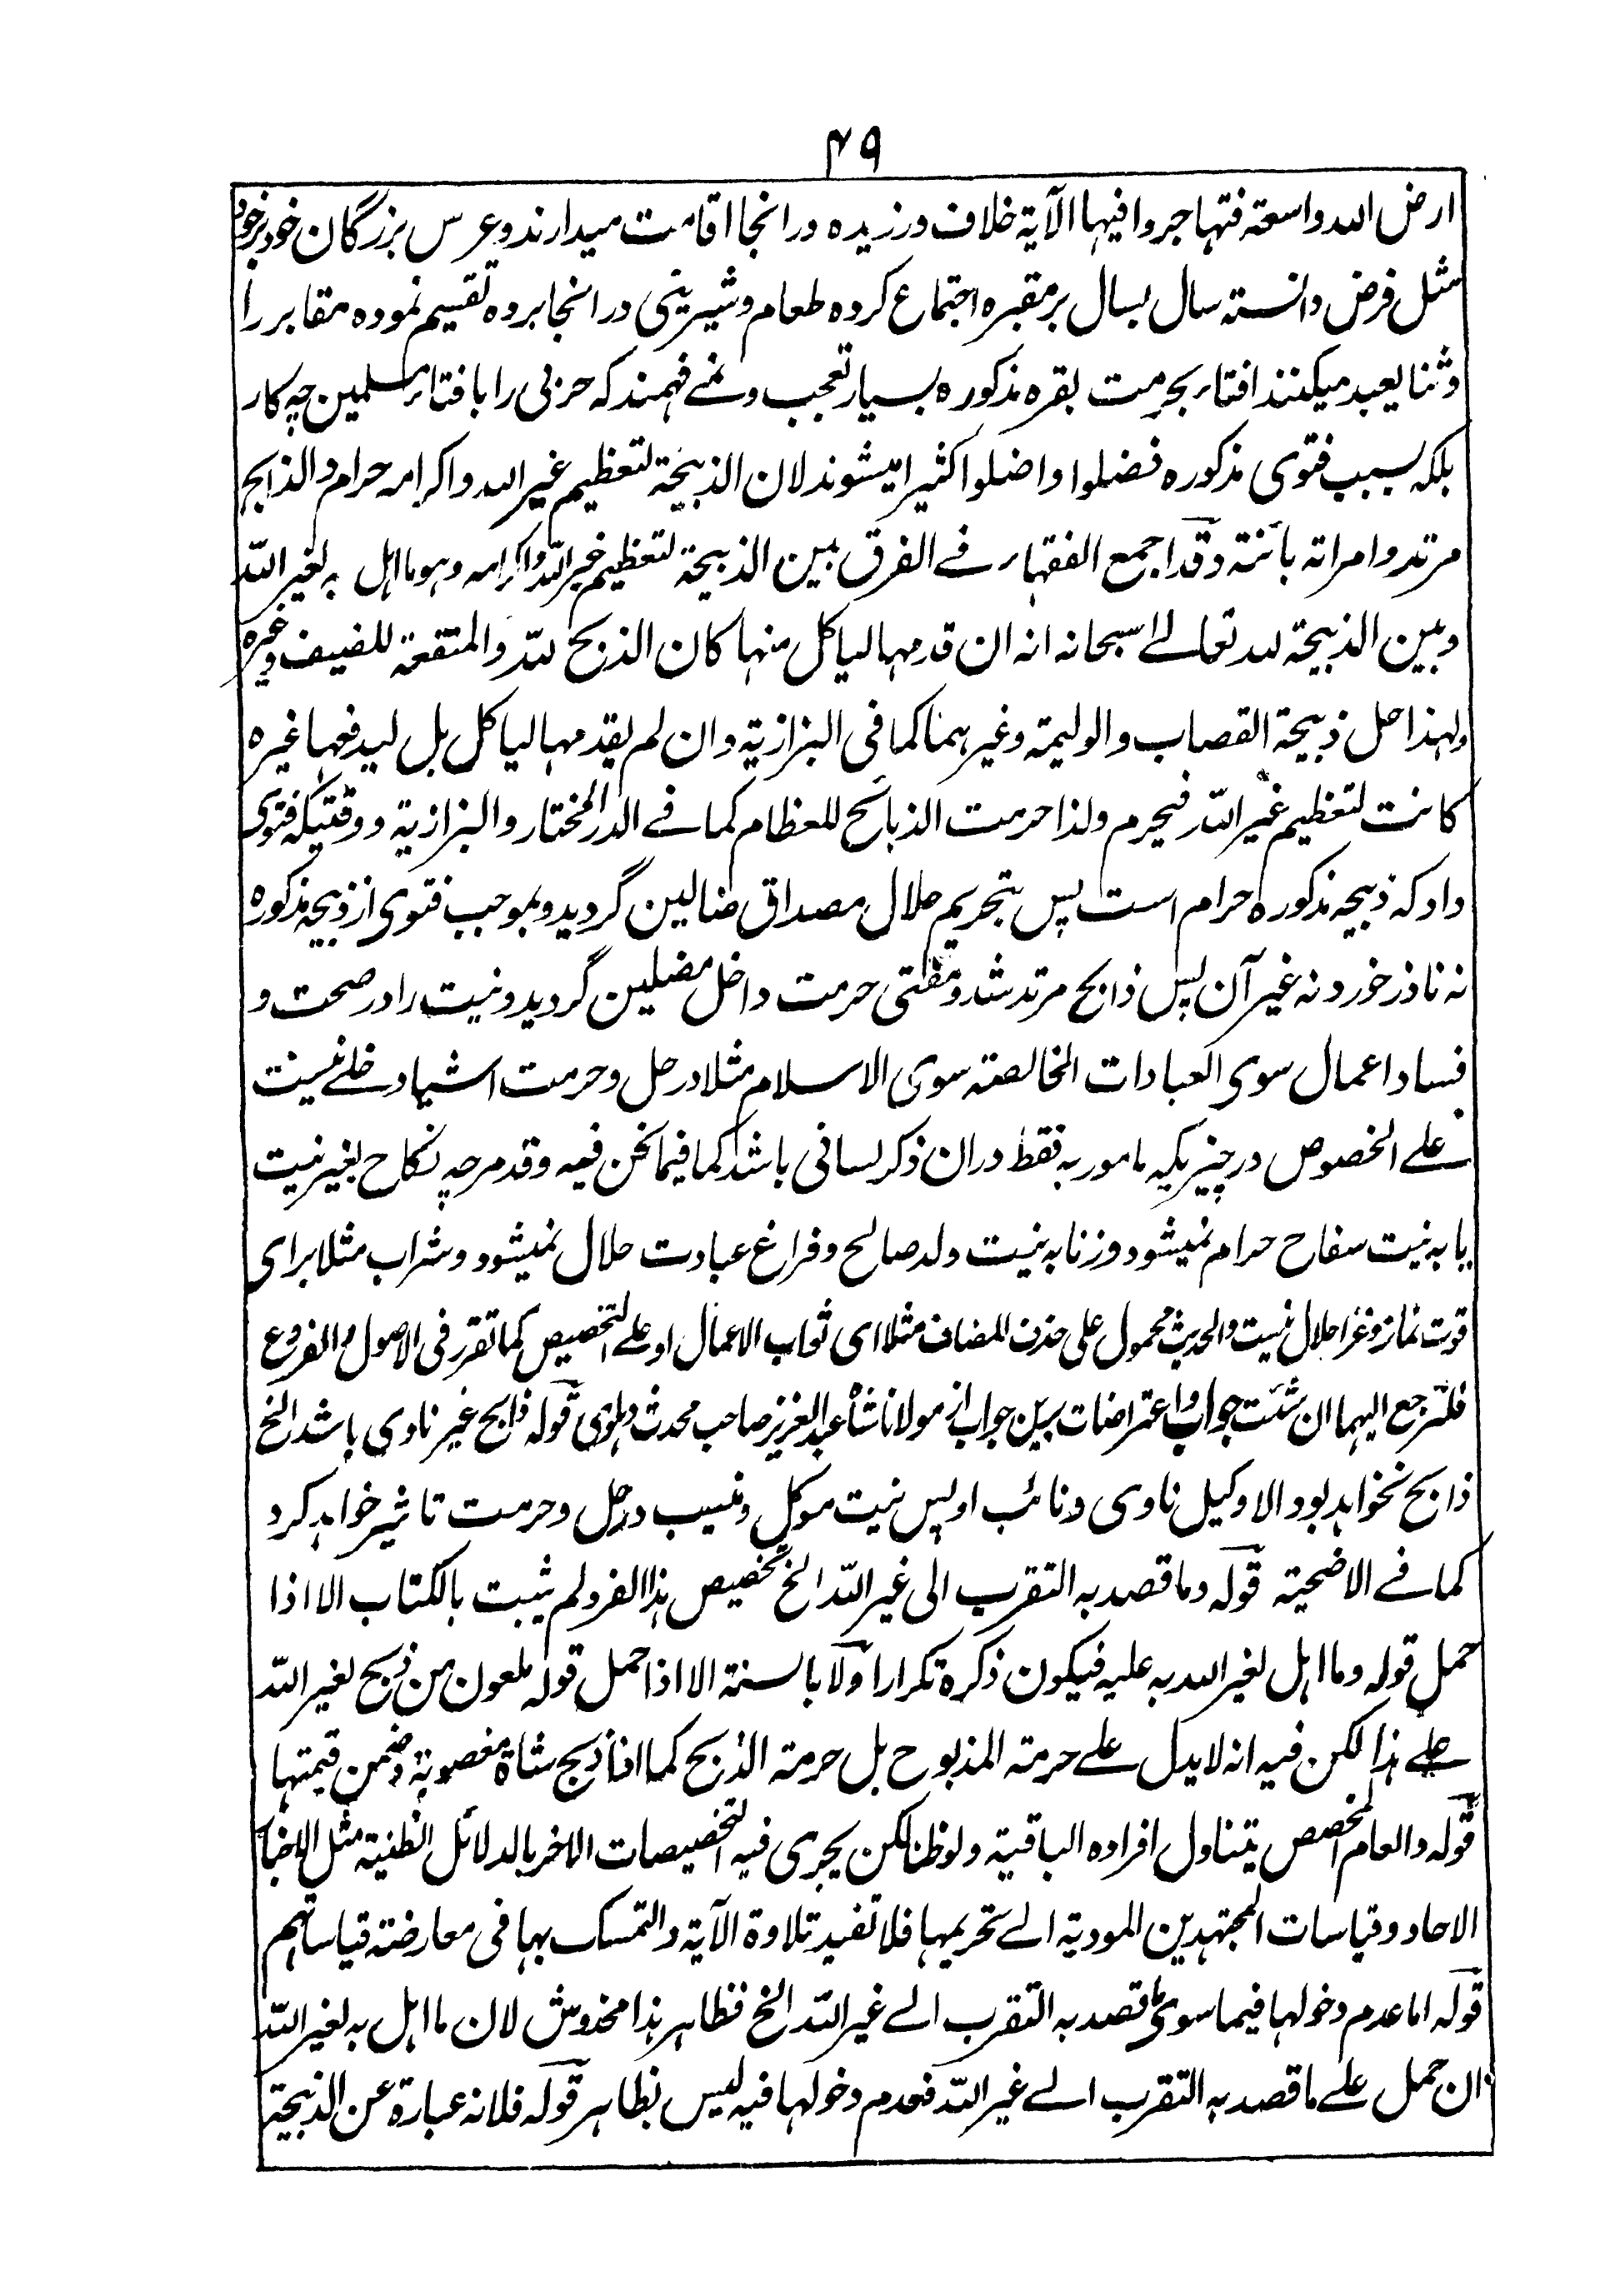 ۴۹
ارض الله واسعة فتهاجروا فيها الآية خلاف ورزيده درانجا اقامت ميدارند و عرس بزرگان خود برخود
مثل فرض دانسته سال بسال بر مقبره اجتماع كرده طعام و شيرينى درانجا برده تقسيم نموده مقابر را
وثنا يعبد ميكنند افتاء بحرمت بقره مذكوره بسيار تعجب و نمے فهمند كه حربى را با فتاء مسلمين چه كار
بلكه بسبب فتوى مذكوره فضلوا واضلوا كثيرا ميشوند لان الذبيحة لتعظيم غير الله واكرامه حرام والذابح
مرتد وامراته بائنة وقد اجمع الفقهاء فے الفرق بين الذبيحة لتعظيم غير الله واكرامه وهو ما اهل به لغير الله
وبين الذبيحة لله تعالے سبحانه انه ان قدمها لياكل منها كان الذبح لله والمنفعة للضيف وغيره
ولهذا حل ذبيحة القصاب والوليمة وغيرهما كما فى البزازية وان لم يقدمها لياكل بل ليدفعها غيره
كانت لتعظيم غير الله فيحرم ولذا حرمت الذبائح للعظام كما فے الدر المختار والبزازية ووقتيكه فتوى
داد كه ذبيحه مذكوره حرام است پس بتحريم حلال مصداق ضالين گرديد و بموجب فتوى از ذبيحه مذكوره
نه ناذر خورد نه غير آن پس ذابح مرتد شد و مفتى حرمت داخل مضلين گرديد و نيت را در صحت و
فساد اعمال سوى العبادات الخالصة سوى الاسلام مثلا در حل و حرمت اشياء دخلے نيست
علے الخصوص در چيزيكه مامور به فقط دران ذكر لسانى باشد كما فيما نحن فيه وقد مر چه نكاح بغير نيت
يا به نيت سفاح حرام نميشود و زنا به نيت ولد صالح و فراغ عبادت حلال نميشود و شراب مثلا براى
قوت نماز و غزا حلال نيست والحديث محمول على حذف المضاف مثلا اى ثواب الاعمال او علے التخصيص كما تقرر فى الاصول والفروع
فلترجع اليهما ان شئت جواب و اعتراضات برين جواب از مولانا شاه عبد العزيز صاحب محدث دهلوى قوله ذابح غير ناوى باشد الخ
ذابح نخواهد بود الا وكيل ناوى و نائب او پس نيت موكل و منيب در حل و حرمت تاثير خواهد كرد
كما فے الاضحية قوله وما قصد به التقرب الى غير الله الخ تخصيص هذا الفرد لم يثبت بالكتاب الا اذا
حمل قوله وما اهل لغير الله به عليه فيكون ذكره تكرارا ولا بالسنة الا اذا حمل قوله ملعون من ذبح لغير الله
علے هذا لكن فيه انه لا يدل علے حرمة المذبوح بل حرمة الذبح كما اذا ذبح شاة مغصوبة وضمن قيمتها
قوله والعام المخصص يتناول افراده الباقية ولو ظنا لكن يجرى فيه التخصيصات الاخر بالدلائل الظنية مثل الاخبار
الاحاد وقياسات المجتهدين المودية الے تحريمها فلا تفيد تلاوة الآية والتمسك بها فى معارضة قياساتهم
قوله اما عدم دخولها فيما سوى ما قصد به التقرب الے غير الله الخ فظاهر هذا مخدوش لان ما اهل به لغير الله
ان حمل علے ما قصد به التقرب الے غير الله فعدم دخولها فيه ليس بظاهر قوله فلانه عبارة عن الذبيحة